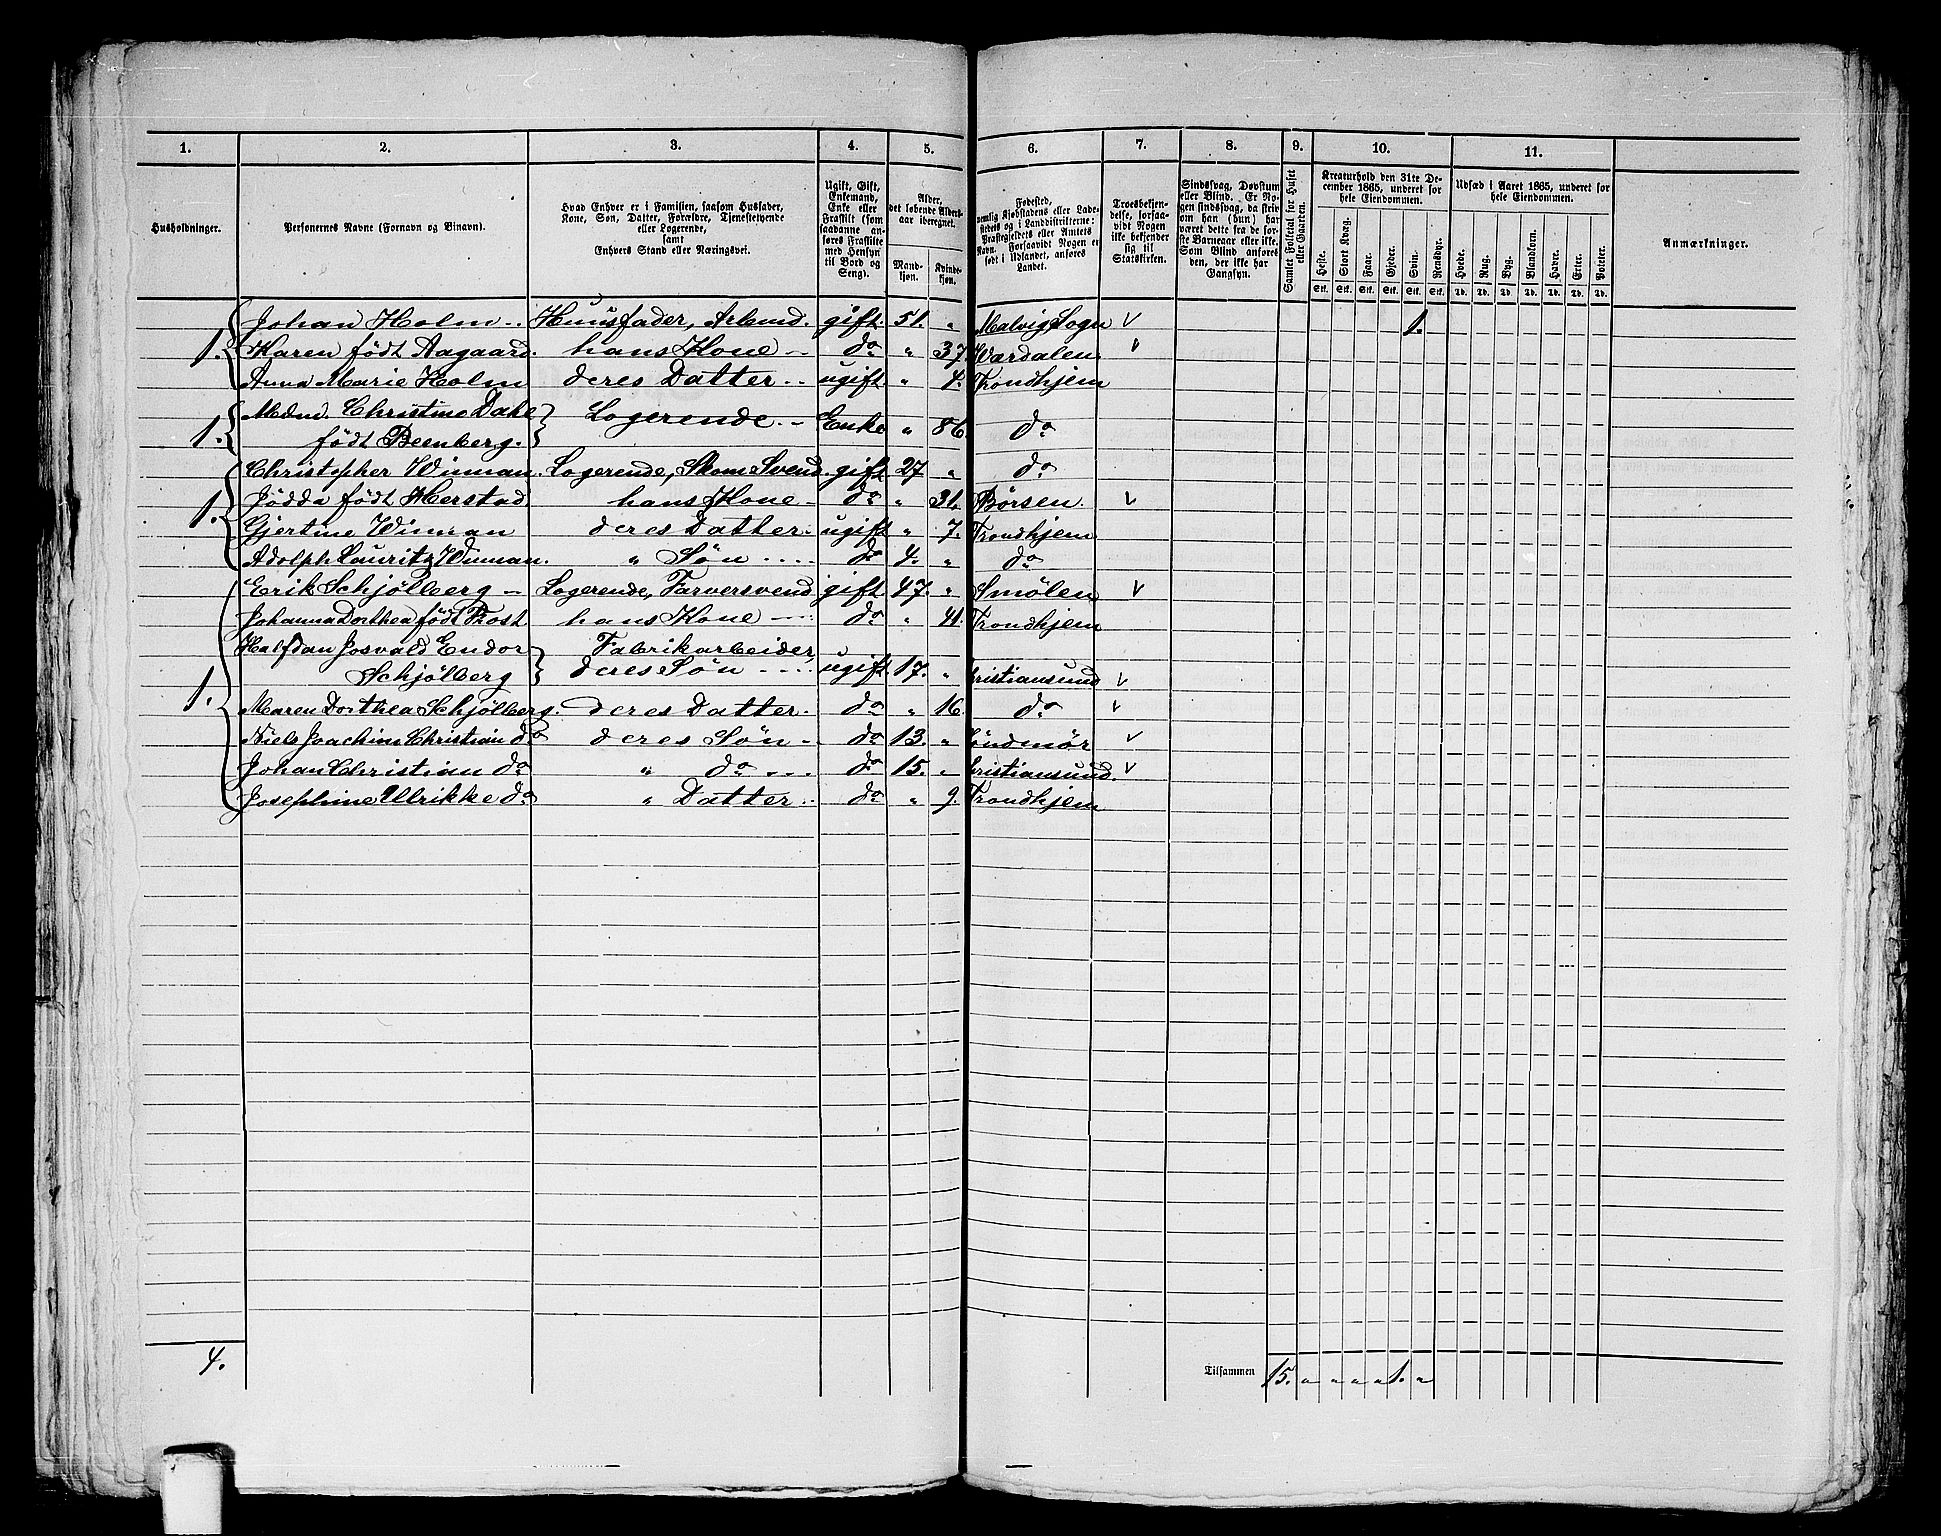 1. 2. 3. 4. 5. 6. 7. 8. 9. 10. 11.
Husholdninger.
Personernes Navne (Fornavn og Binavn).
Hvad Enhver er i Familien, saasom Husfader,
Kone, Søn, Datter, Forældre, Tjenestetyende
eller Logerende,
samt
Enhvers Stand eller Næringsvei.
Ugift, Gift,
Enkemand,
Enke eller
Fraskilt (som
saadanne an-
føres Fraskilte
med Hensyn
til Bord og
Seng).
Alder,
det løbende Alders-
aar iberegnet.
Mand-
kjøn.
Kvinde-
kjøn.
Fødested,
nemlig Kjøbstadens eller Lade-
stedets og i Landdistrikterne:
Præstegjeldets eller Amtets
Navn. Forsaavidt Nogen er
født i Udlandet, anføres
Landet.
Troesbekjen-
delse, forsaa-
vidt Nogen
ikke bekjender
sig til
Statskirken.
Sindssvag, Døvstum
eller Blind. Er No-
gen sindssvag, da skriv
om han (hun) har
været dette fra de før-
ste Barneaar eller ikke.
Som Blind anføres
den, der ikke har
Gangsyn.
Samlet Folketal for Huset
eller Gaarden.
Kreaturhold den 31te De-
cember 1865, underet for
hele Eiendommen.
Heste. Stort Kvæg. Faar. Gjeder. Svin. Rensdyr.
Stk. Stk. Stk. Stk. Stk. Stk.
Udsæd i Aaret 1865, underet for
hele Eiendommen.
Hvede. Rug. Byg. Blandkorn. Havre. Erter. Poteter.
Td. Td. Td. Td. Td. Td. Td.
Anmærkninger.
Johan Holm Huusfader, Arbmd. gift 51. " Malvig Sogn V 1.
1. Karen født Aagaard. hans Kone do " 37. Værdalen "
Anna Marie Holm deres Datter ugift " 4. Trondhjem
Mdm. Christine Dahl Logerende Enke " 86. do
1. født Beenberg.
Christopher Winman. Logerende, Skom. Svend. gift 27 " do
Jødda født Herstad hans Kone do " 31. Børsen. V
1. Gjertine Winman deres Datter ugift " 7. Trondhjem
Adolph Lauritz Winman. " Søn do 4. " do
Erik Schjølberg Logerende, Farversvend gift 47. " Smølen V
Johanna Dorthea født Rost hans Kone do " 41. Trondhjem
Halfdan Josvald Endor Fabrikarbeider,
1. Schjølberg deres Søn ugift 17. " Cristiansund V
Maren Dorthea Schjølberg. deres Datter. do " 16. do V
Niels Joachim Christian do deres Søn do 13. " Søndmør V
Johan Christian do " do do 15. " Cristiansund. V
Josephine Ulrikke do " Datter do " 9. Trondhjem
4.
Tilsammen 15. " " " " 1. "